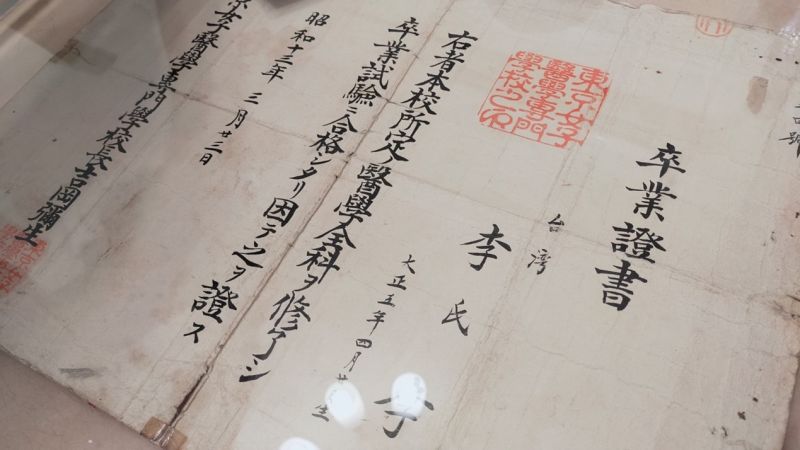 號
卒業證書
東京女子
醫學專門
學校之印
台湾
李氏
大正五年四月廿 生
右者本校所定ノ醫學全科ヲ修了シ
卒業試驗ニ合格シタリ因テ之ヲ證ス
昭和十三年三月廿三日
京女子醫學專門學校長吉岡彌生